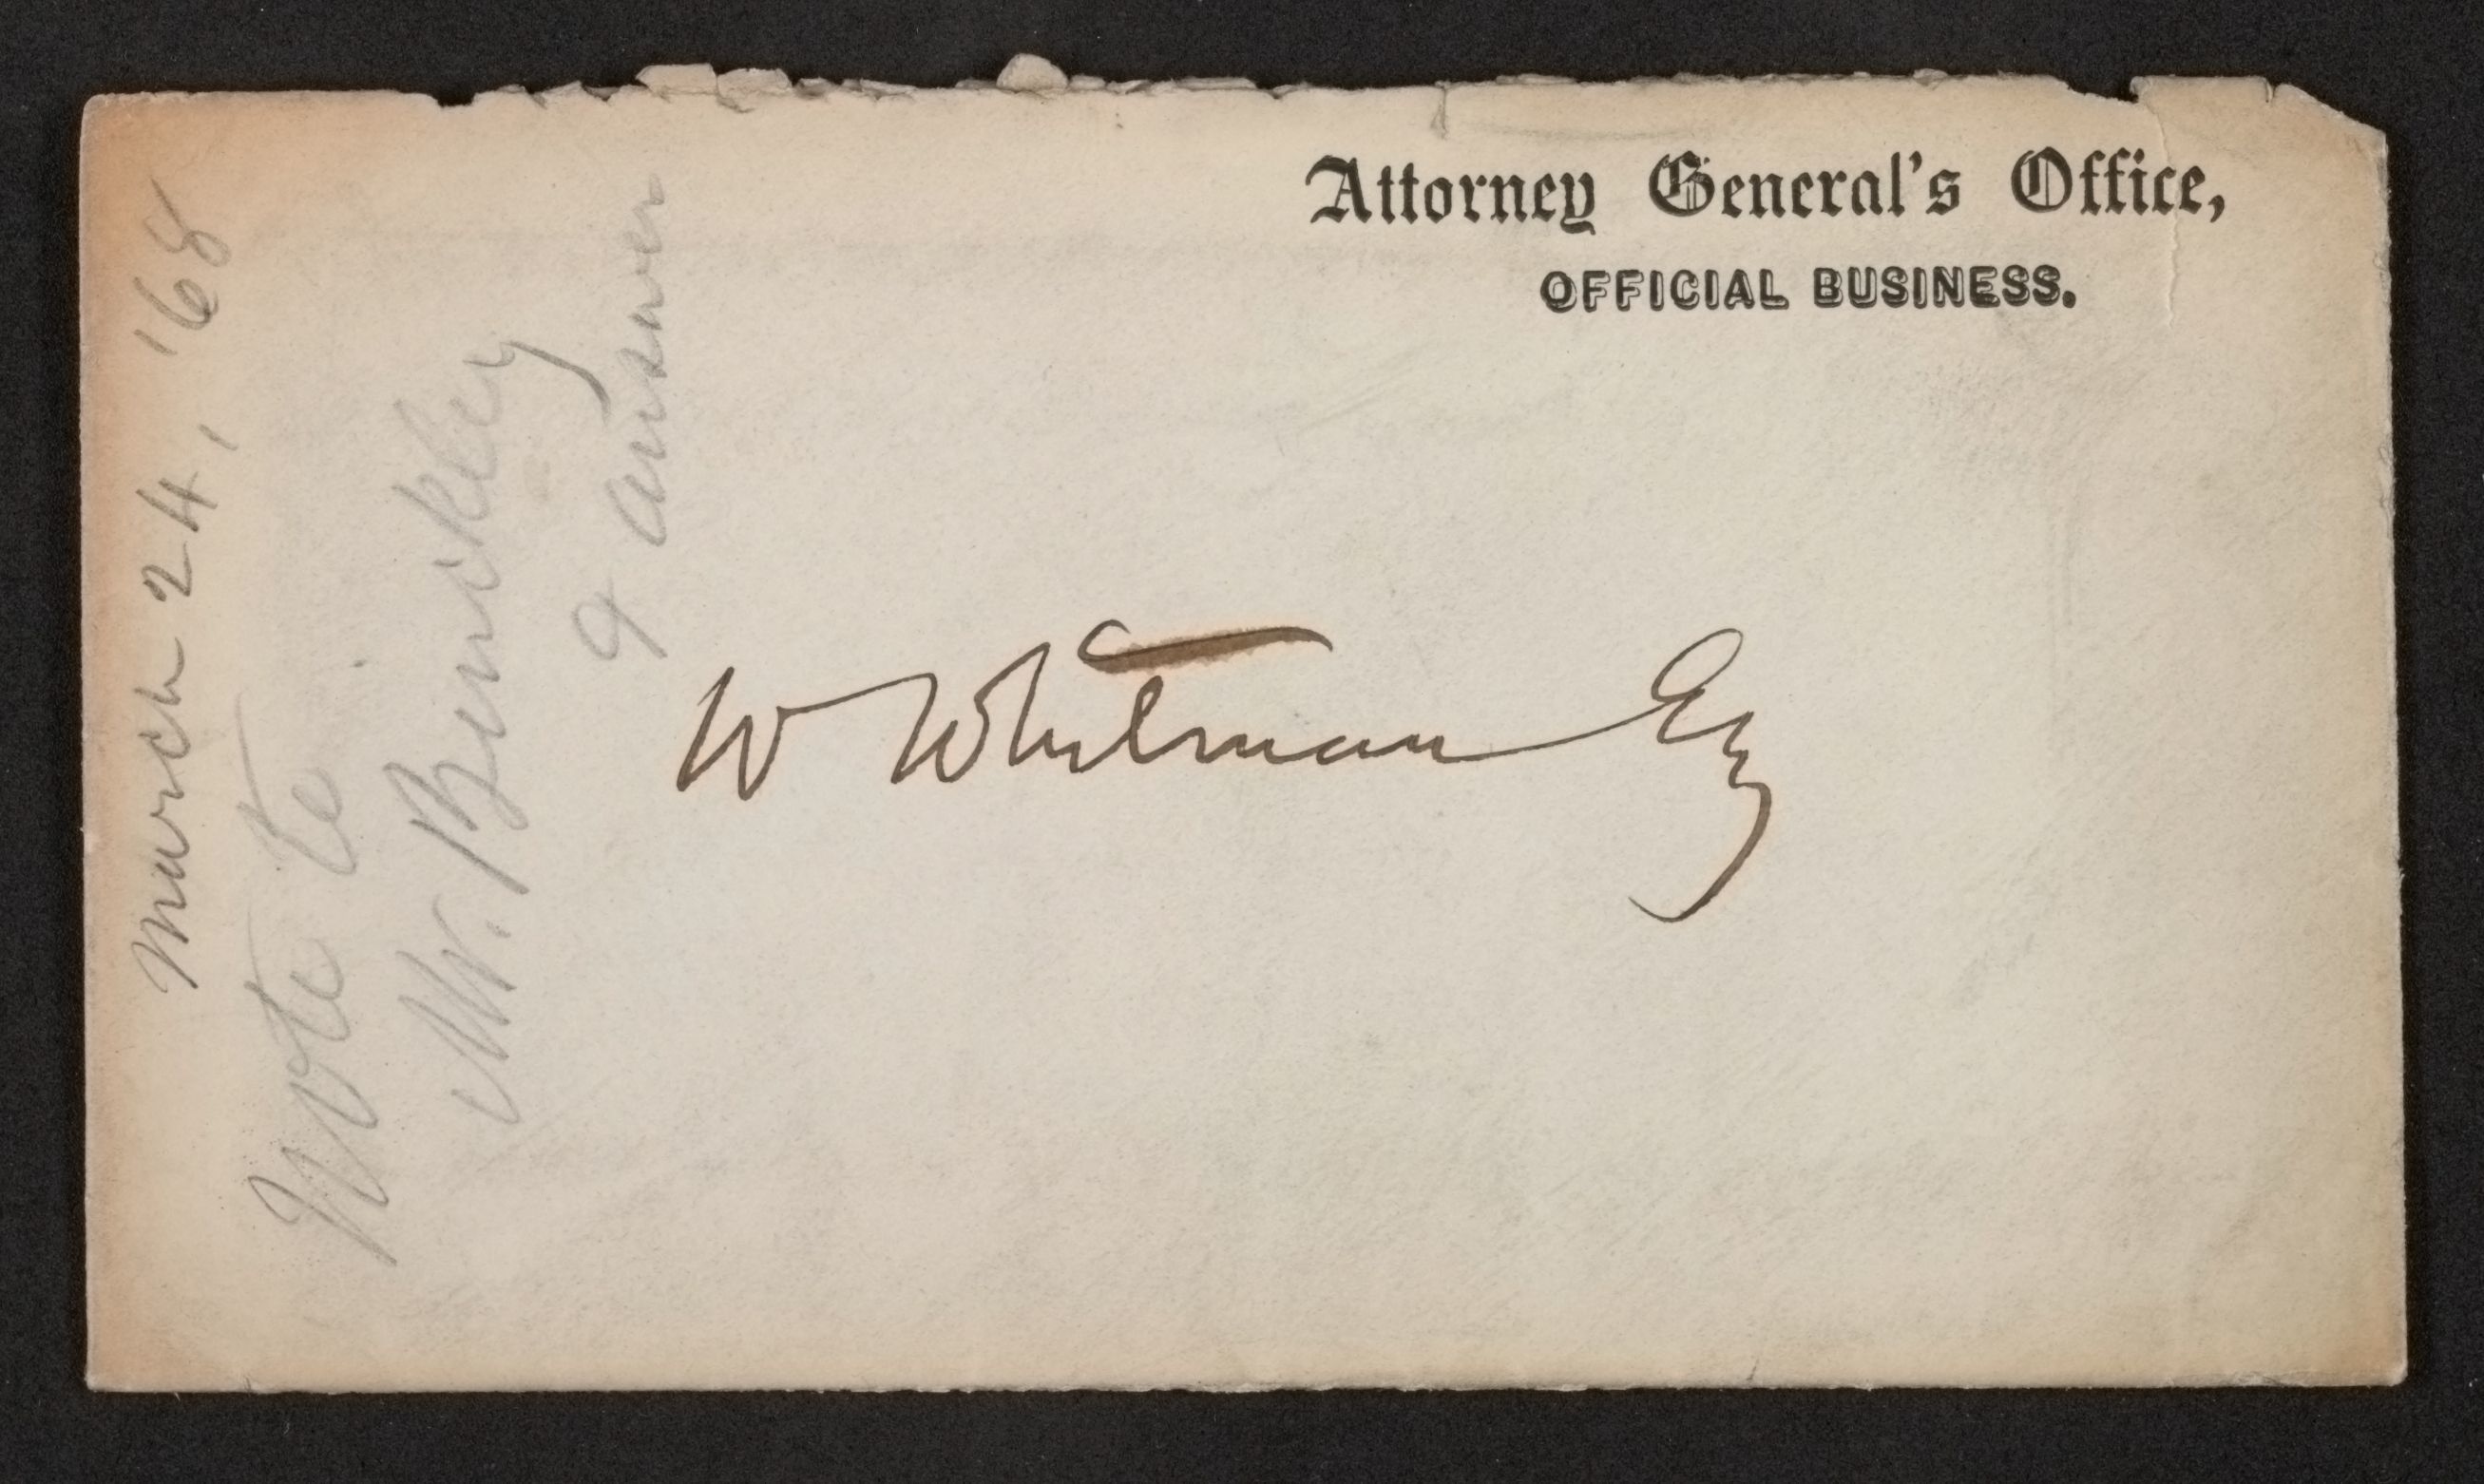 Attorney General's Office,
OFFICIAL BUSINESS.
W Whitman Esq
March 24, '68
Note to
Mr. Binckley
& answer